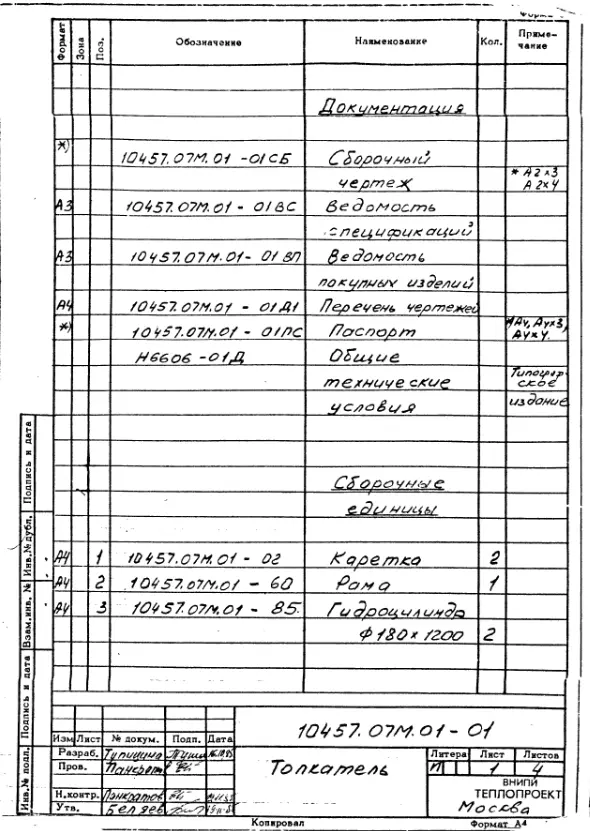 Формат Зона Поз. Обозначение Наименование Кол. Примечание
Документация
*) 10457.07М.01 -01СБ Сборочный
чертеж * А2х3
А2х4
А3 10457.07М.01 - 01ВС Ведомость
спецификаций
А3 10457.07М.01 - 01ВП Ведомость
покупных изделий
А4 10457.07М.01 - 01Д1 Перечень чертежей
*) 10457.07М.01 - 01ПС Паспорт *А4, А4х3,
А4х4.
Н6606 -01Д Общие
технические Типограф-
ское
условия издание
Сборочные
единицы
А4 1 10457.07М.01 - 02 Каретка 2
А4 2 10457.07М.01 - 60 Рама 1
А4 3 10457.07М.01 - 85 Гидроцилиндр
Ф180х1200 2
Инв.№ подл. Подпись и дата Взам.инв. № Инв.№ дубл. Подпись и дата
10457.07М.01 - 01
Изм Лист № докум. Подп. Дата
Разраб. Тупицина
Пров. Панкратов
Н.контр. Панкратов
Утв. Беляев
Толкатель
Литера Лист Листов
И 1 4
ВНИПИ
ТЕПЛОПРОЕКТ
Москва
Копировал Формат А4